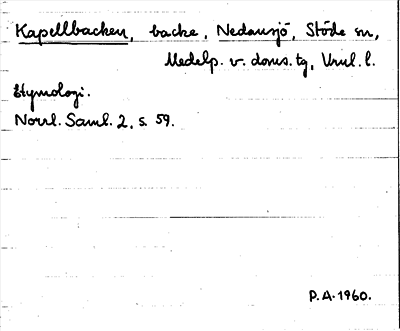 Kapellbacken, backe, Nedansjö, Stöde sn,
Medelp. v. doms. tg, Vnul. l.
Etymologi.
Norrl. Saml. 2, s. 59.
P.A. 1960.